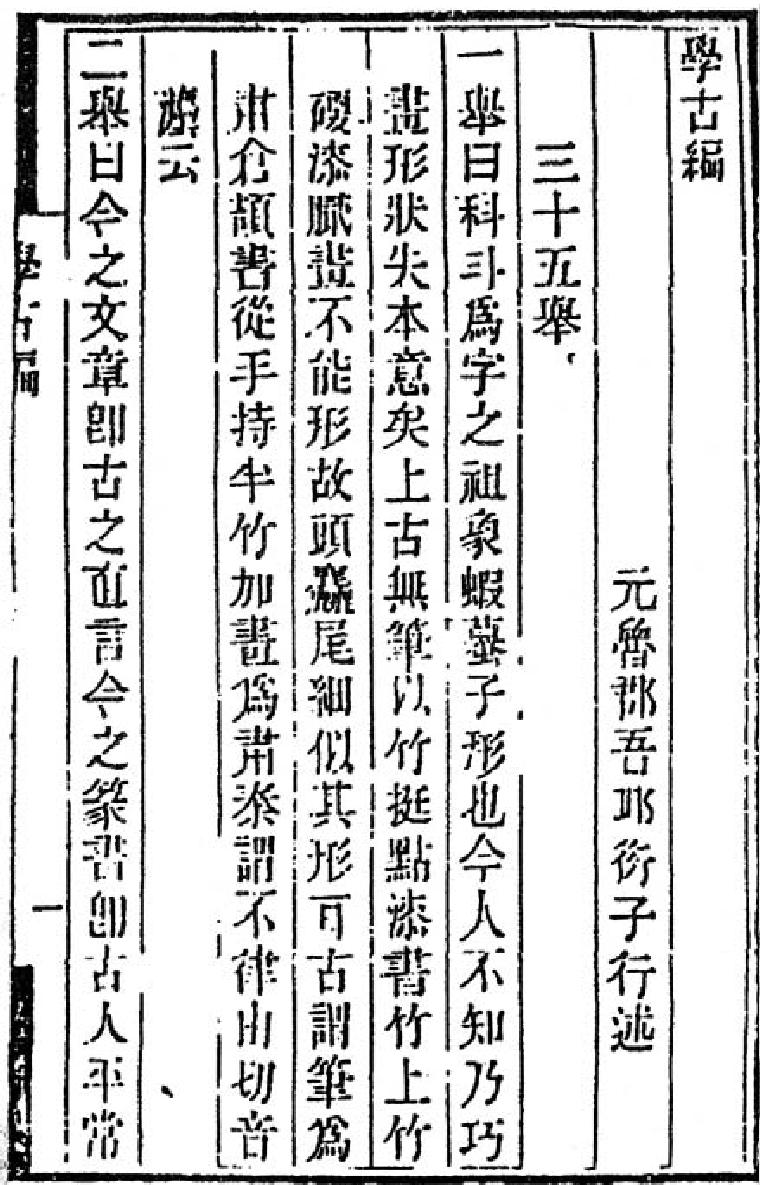 學古編
元魯郡吾邱衍子行述
三十五舉
一舉曰科斗爲字之祖象蝦蟇子形也今人不知乃巧
畫形狀失本意矣上古無筆以竹挺點漆書竹上竹
硬漆膩畫不能形故頭麤尾細似其形耳古謂筆爲
聿倉頡書從手持半竹加畫爲聿秦謂不律由切音
灋云
二舉曰今之文章卽古之直言今之篆書卽古人平常
學古編
一